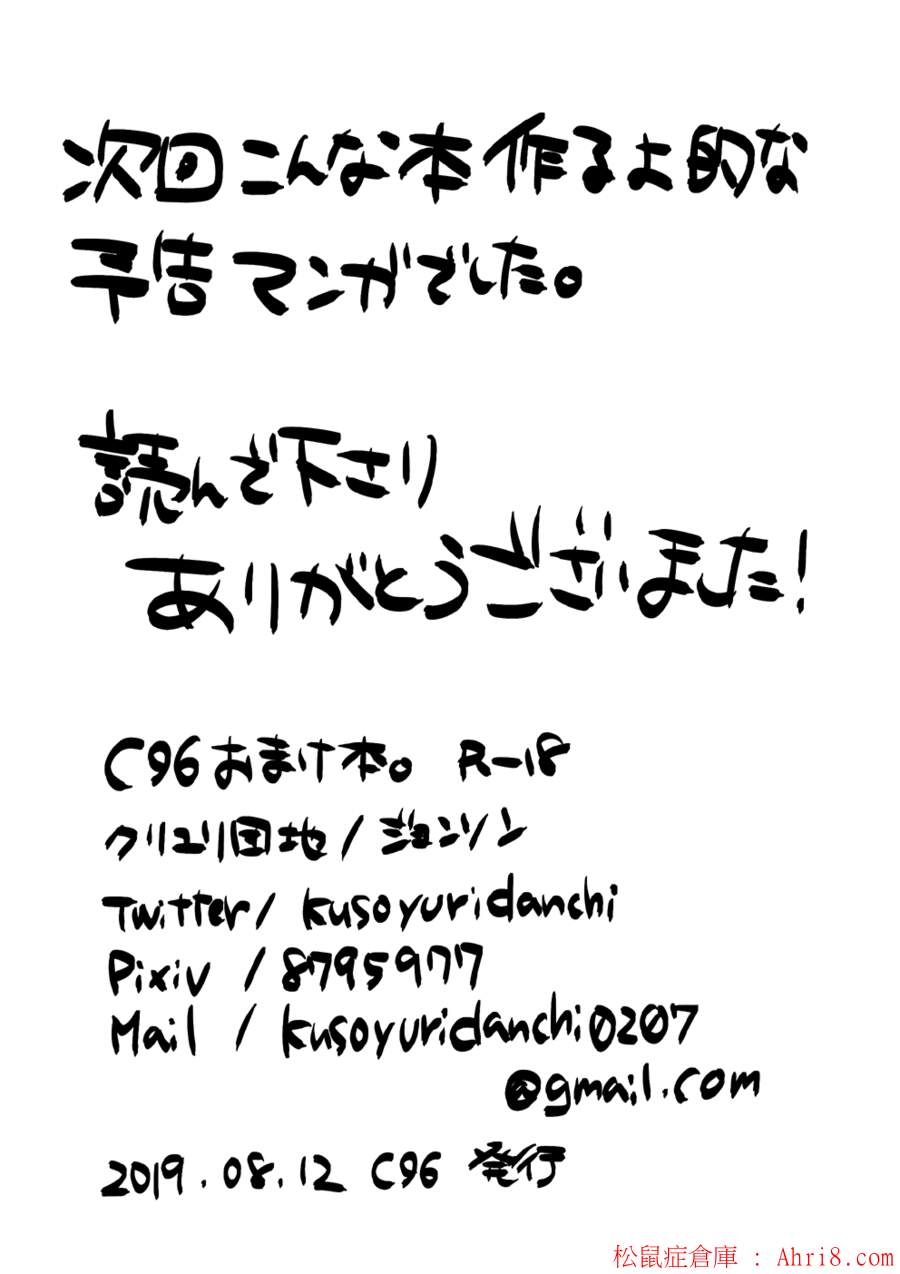 次回こんな本作るよ的な
予告マンガでした。
読んで下さり
ありがとうございました！
C96おまけ本。 R-18
クリユリ団地/ジョンソン
Twitter/ kusoyuridanchi
Pixiv / 8795977
Mail / kusoyuridanchi0207
@gmail.com
2019.08.12 C96 発行
松鼠症倉庫 : Ahri8.com